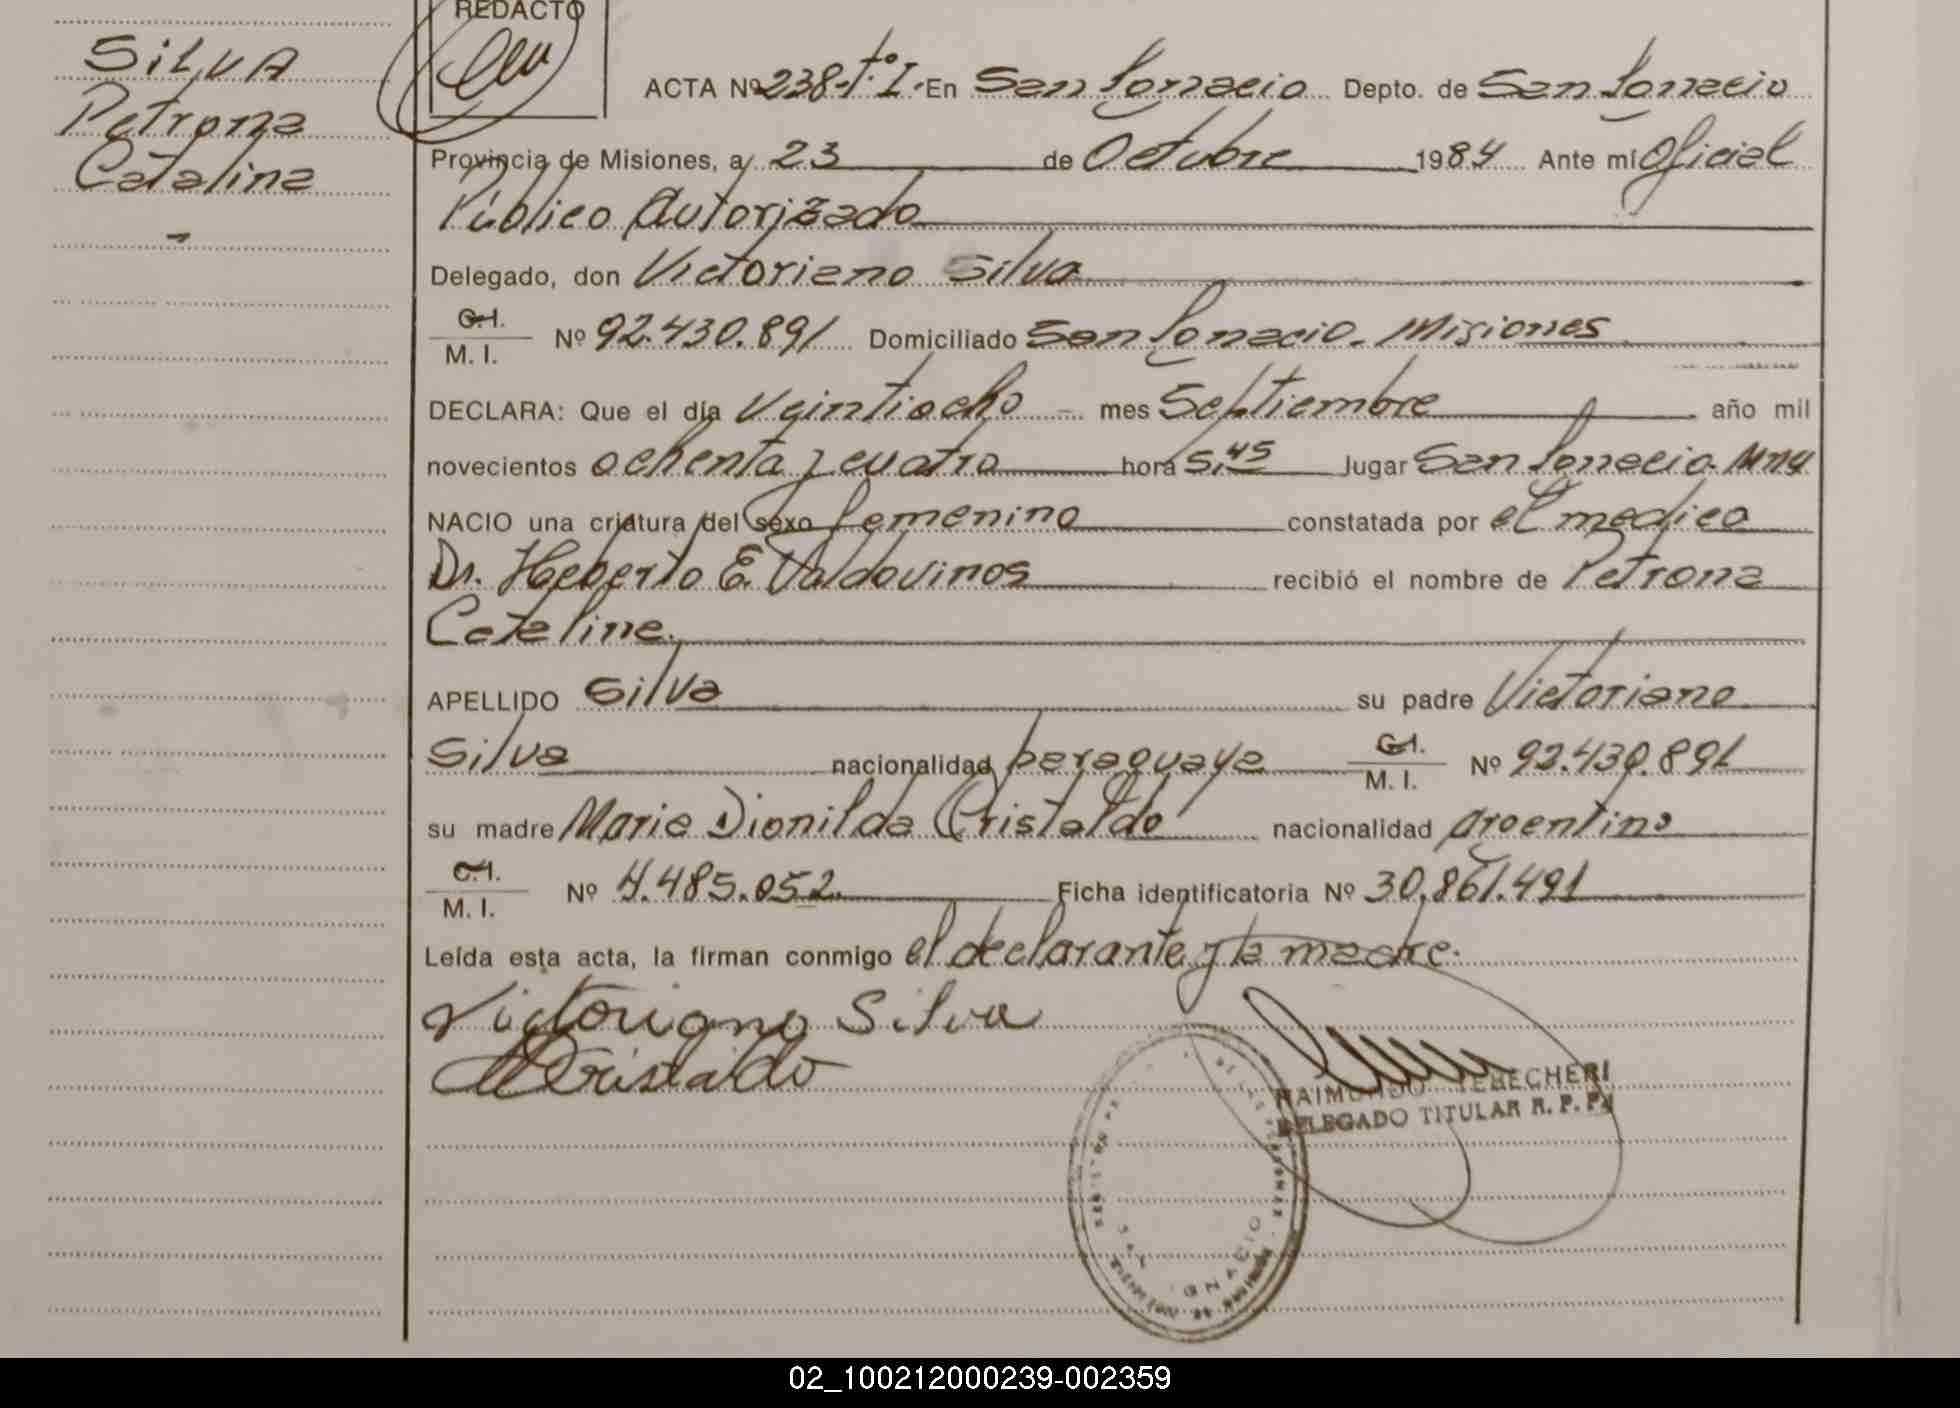 SILVA
Petrona
Catalina
REDACTO
ACTA Nº 238-Tº I. En San Ignacio Depto. de San Ignacio
Provincia de Misiones, a 23 de Octubre 1984 Ante mí Oficial
Público Autorizado
Delegado, don Victoriano Silva
C.I.
M. I. Nº 92.430.891 Domiciliado San Ignacio. Misiones
DECLARA: Que el día Veintiocho mes Septiembre año mil
novecientos ochenta y cuatro hora 5,45 lugar San Ignacio. Mnes
NACIO una criatura del sexo femenino constatada por el medico
Dr. Heberto E. Valdovinos recibió el nombre de Petrona
Catalina.
APELLIDO Silva su padre Victoriano
Silva nacionalidad paraguaya C.I.
M. I. Nº 92.430.891
su madre Maria Dionilda Cristaldo nacionalidad argentina
C.I.
M. I. Nº 4.485.052. Ficha identificatoria Nº 30.861.491
Leída esta acta, la firman conmigo el declarante y la madre.
Victoriano Silva
MDCristaldo
RAIMUNDO TEHECHERI
DELEGADO TITULAR R. P. P.
SAN IGNACIO
02_100212000239-002359